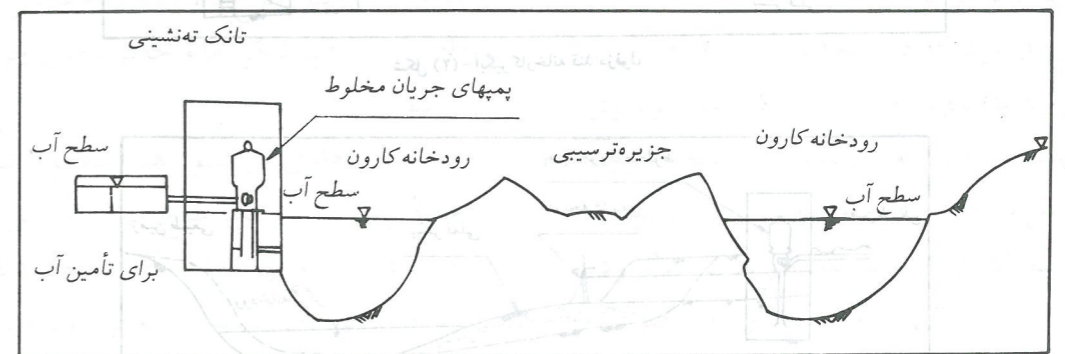 تانک ته‌نشینی
پمپهای جریان مخلوط
سطح آب
رودخانه کارون
جزیره‌ترسیبی
رودخانه کارون
سطح آب
سطح آب
برای تأمین آب